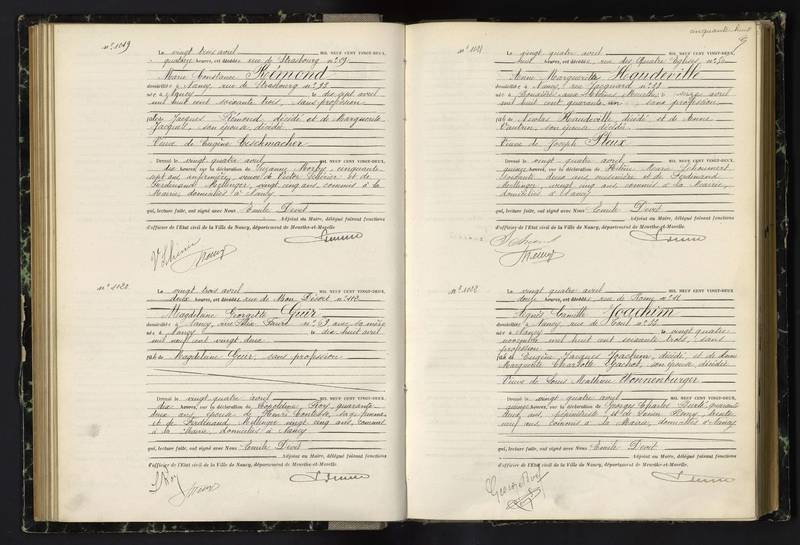 cinquante huit
N° 1019
Le vingt trois avril MIL NEUF CENT VINGT-DEUX,
quatorze heures, est décédée rue de Strasbourg n° 89
Marie Constance Rémond
domiciliée à Nancy, rue de Strasbourg n°
née à Nancy le dix sept avril
mil huit cent soixante trois, sans profession
fille de Jacques Rémond, décédé et de Marguerite
Jacquot, son épouse décédée
Veuve de Eugène Geschmacher
Dressé le vingt quatre avril MIL NEUF CENT VINGT-DEUX,
dix heures, sur la déclaration de Suzanne cinquante
sept ans, infirmière, veuve de Victor et de
Ferdinand Mellinger, vingt cinq ans, commis à la
Mairie, domiciliés à Nancy
qui, lecture faite, ont signé avec Nous Emile Devit
Adjoint au Maire, délégué faisant fonctions
d'officier de l'Etat civil de la Ville de Nancy, département de Meurthe-et-Moselle.
N° 1020
Le vingt trois avril MIL NEUF CENT VINGT-DEUX,
deux heures, est décédée rue de Bon Désert n° 112
Magdeleine Georgette Geir
domiciliée à Nancy, rue n° 69 avec sa mère
née à Nancy le dix huit avril
mil neuf cent vingt deux
fille de Magdeleine Geir, sans profession
Dressé le vingt quatre avril MIL NEUF CENT VINGT-DEUX,
dix heures, sur la déclaration de Léopoldine Roy, quarante
deux ans, épouse de Henri sage femme
et de Ferdinand Mellinger vingt cinq ans, commis
à la Mairie, domiciliés à Nancy
qui, lecture faite, ont signé avec Nous Emile Devit
Adjoint au Maire, délégué faisant fonctions
d'officier de l'Etat civil de la Ville de Nancy, département de Meurthe-et-Moselle.
N° 1021
Le vingt quatre avril MIL NEUF CENT VINGT-DEUX,
huit heures, est décédée, rue des Quatre Eglises, n°
Anne Marguerite Haudeville
domiciliée à Nancy, rue Jacquard n°
née à le seize avril
mil huit cent quarante un, sans profession
fille de Nicolas Haudeville, décédé et de Anne
Vautrin, son épouse décédée
Veuve de Joseph Pleux
Dressé le vingt quatre avril MIL NEUF CENT VINGT-DEUX,
quinze heures, sur la déclaration de Marie
soixante deux ans, cuisinière et de Ferdinand
Mellinger, vingt cinq ans, commis à la Mairie,
domiciliés à Nancy
qui, lecture faite, ont signé avec Nous Emile Devit
Adjoint au Maire, délégué faisant fonctions
d'officier de l'Etat civil de la Ville de Nancy, département de Meurthe-et-Moselle.
N° 1022
Le vingt quatre avril MIL NEUF CENT VINGT-DEUX,
douze heures, est décédée rue de
Agnès Camille Joachim
domiciliée à Nancy, rue de
née à Nancy le vingt quatre
novembre mil huit cent soixante trois, sans
profession
fille de Eugène Jacques Joachim, décédé, et de Anne
Marguerite Charlotte Gachot, son épouse, décédée
Veuve de Louis Mathieu Wonnenberger
Dressé le vingt quatre avril MIL NEUF CENT VINGT-DEUX,
quinze heures, sur la déclaration de Georges Charles quarante
deux ans, et de Louis trente
neuf ans, commis à la Mairie, domiciliés à Nancy
qui, lecture faite, ont signé avec Nous Emile Devit
Adjoint au Maire, délégué faisant fonctions
d'officier de l'Etat civil de la Ville de Nancy, département de Meurthe-et-Moselle.